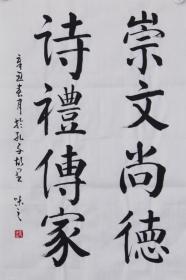 崇文尚德
詩禮傳家
辛丑春月於孔子故里